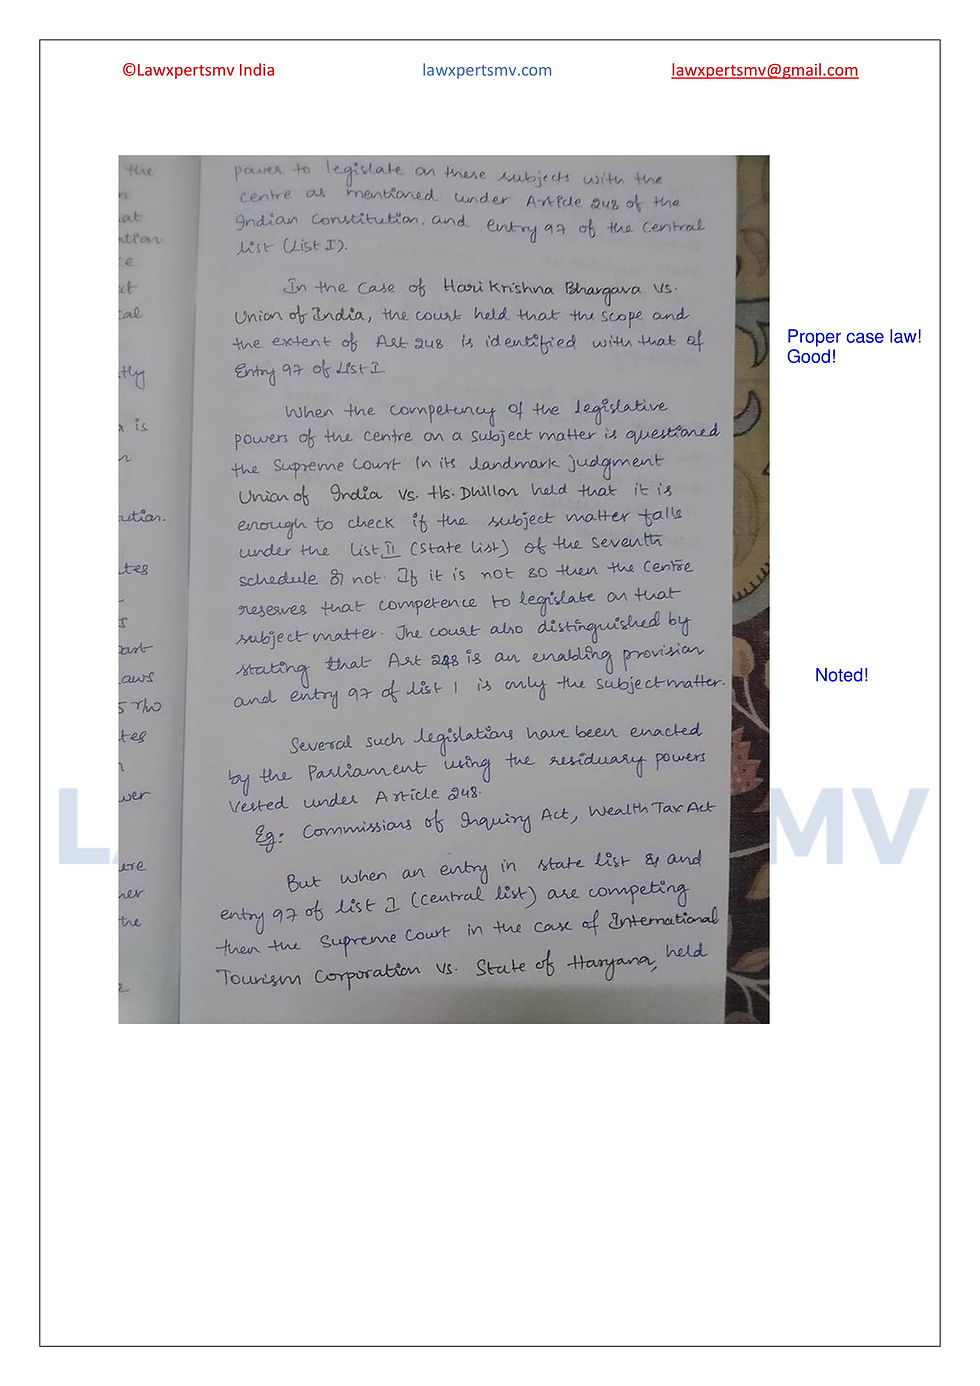 ©Lawxpertsmv India lawxpertsmv.com lawxpertsmv@gmail.com
power to legislate on these subjects with the
centre as mentioned under Article 248 of the
Indian Constitution. and entry 97 of the Central
list (List I).
In the case of Hari Krishna Bhargava vs.
Union of India, the court held that the scope and
the extent of Art 248 is identified with that of
Entry 97 of List I.
Proper case law!
Good!
When the competency of the legislative
powers of the centre on a subject matter is questioned
the Supreme Court in its landmark judgment
Union of India vs. Hs. Dhillon held that it is
enough to check if the subject matter falls
under the list II (State list) of the seventh
schedule or not. If it is not so then the Centre
reserves that competence to legislate on that
subject matter. The court also distinguished by
stating that Art 248 is an enabling provision
and entry 97 of list I is only the subject matter.
Noted!
Several such legislations have been enacted
by the Parliament using the residuary powers
vested under Article 248.
Eg: Commissions of Inquiry Act, Wealth Tax Act
But when an entry in state list and
entry 97 of list I (central list) are competing
then the Supreme Court in the case of International
Tourism Corporation vs. State of Haryana, held
the
at
ution.
tes
aws
tes
wer
ere
her
the
L MV